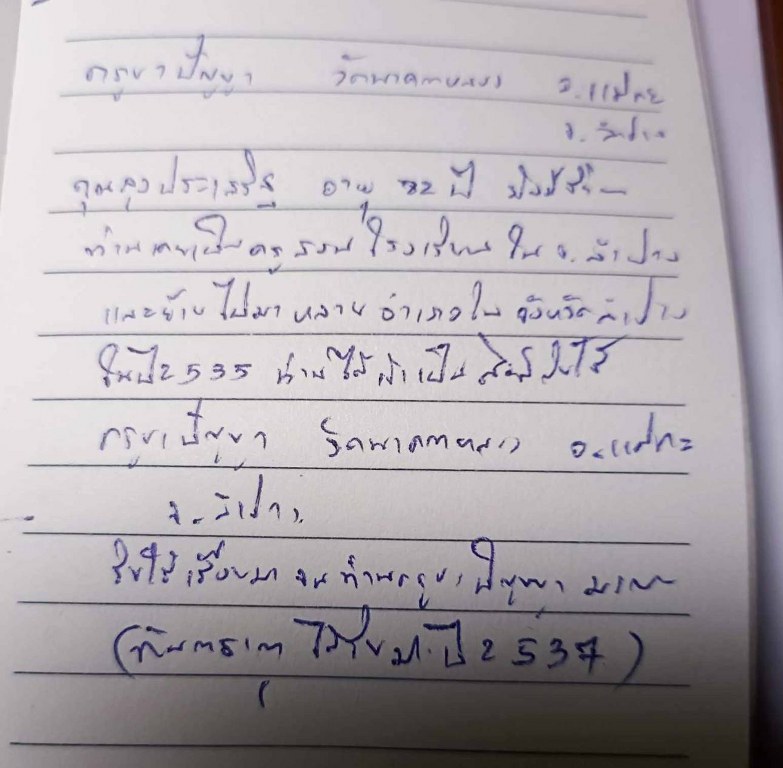 ครูบาปัญญา วัดนาคตหลวง อ.แม่ทะ
จ.ลำปาง
คุณลุงประเสริฐ อายุ 82 ปี ยังมีชีวิต
ท่านเคยเป็นครูสอนโรงเรียนใน จ.ลำปาง
และย้ายไปมาหลายอำเภอใน จังหวัดลำปาง
ในปี 2535 ท่านได้มาเป็น รับใช้
ครูบาปัญญา วัดนาคตหลวง อ.แม่ทะ
จ.ลำปาง
รับใช้เรื่อยมา จนท่านครูบาปัญญา มรณะ
( ได้รับมา ปี 2537)